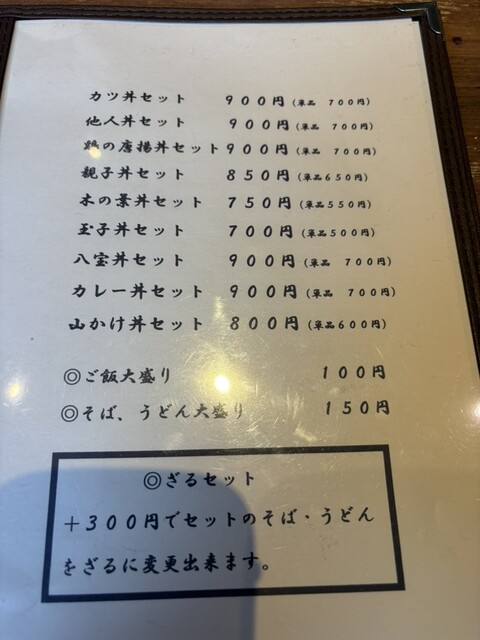 カツ丼セット 900円(単品 700円)
他人丼セット 900円(単品 700円)
鶏の唐揚丼セット 900円(単品 700円)
親子丼セット 850円(単品650円)
木の葉丼セット 750円(単品550円)
玉子丼セット 700円(単品500円)
八宝丼セット 900円(単品 700円)
カレー丼セット 900円(単品 700円)
山かけ丼セット 800円(単品600円)
◎ご飯大盛り 100円
◎そば、うどん大盛り 150円
◎ざるセット
+300円でセットのそば・うどん
をざるに変更出来ます。